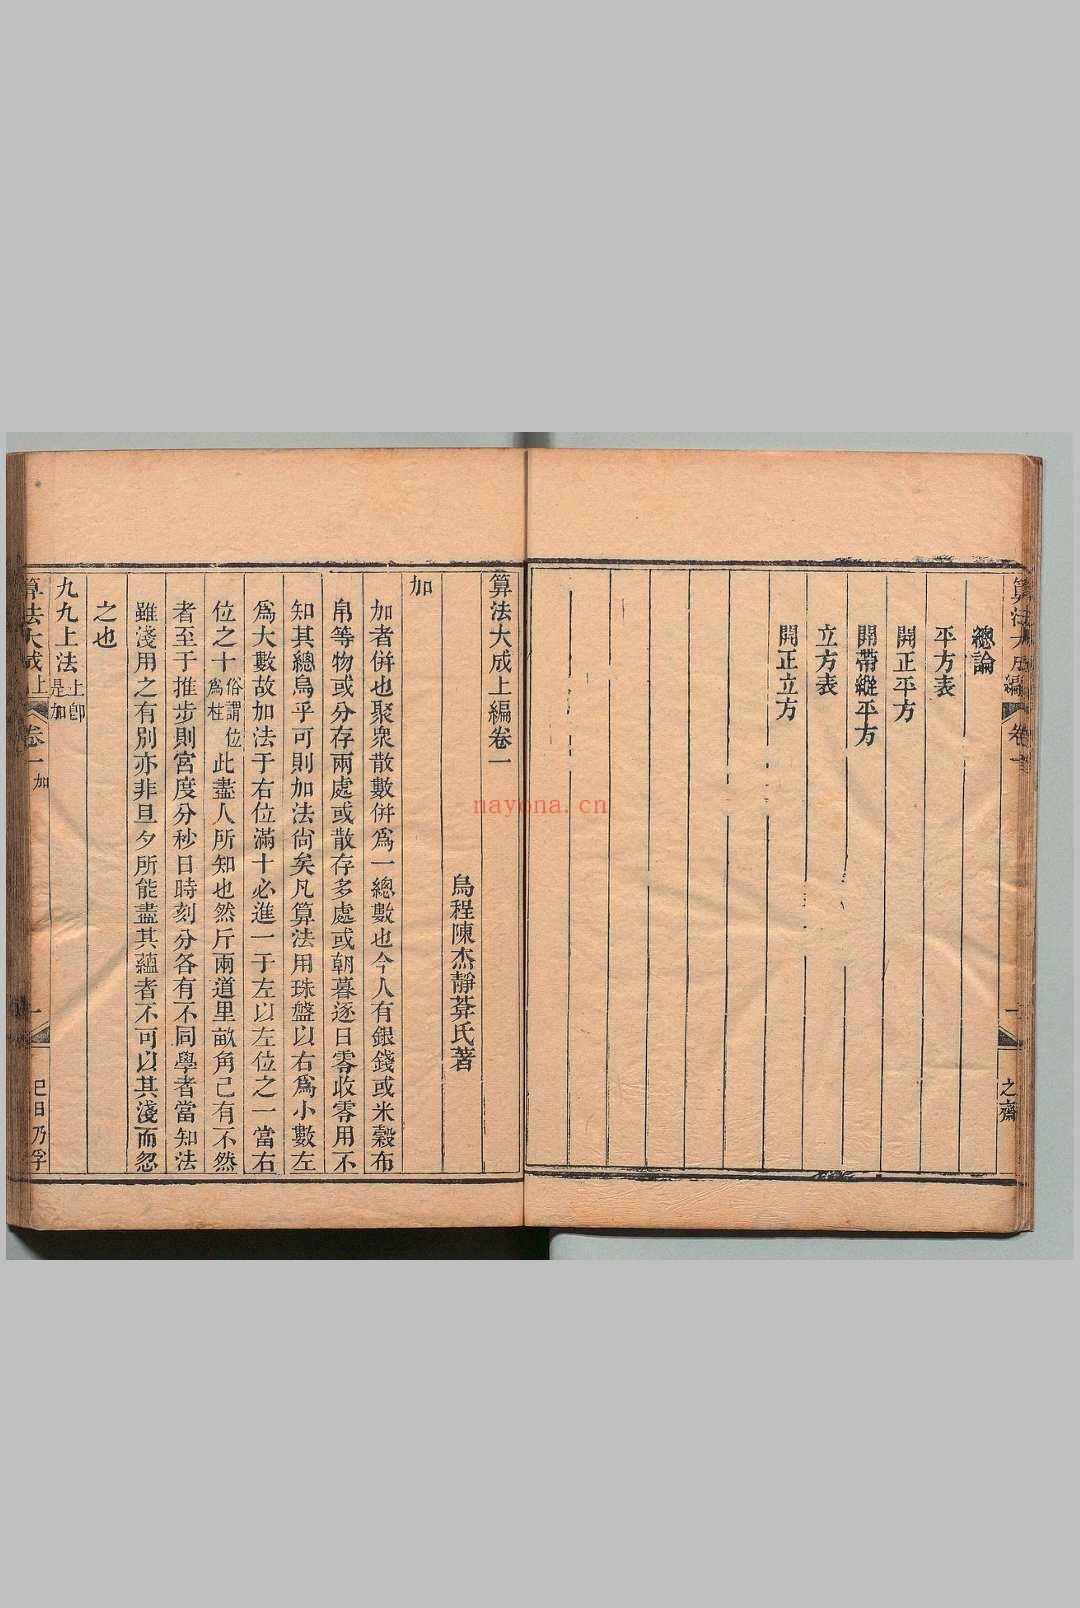 總論
平方表
開正平方
開帶縱平方
立方表
開正立方
之齋
算法大成上編卷一
烏程陳杰靜葊氏著
加
加者併也聚衆散數併爲一總數也今人有銀錢或米穀布
帛等物或分存兩處或散存多處或朝暮逐日零收零用不
知其總烏乎可則加法尙矣凡算法用珠盤以右爲小數左
爲大數故加法于右位滿十必進一于左以左位之一當右
位之十俗謂位爲柱此盡人所知也然斤兩道里畝角已有不然
者至于推步則宮度分秒日時刻分各有不同學者當知法
雖淺用之有別亦非旦夕所能盡其蘊者不可以其淺而忽
之也
九九上法上卽是加
算法大成上
卷一
加
一
nayona.cn